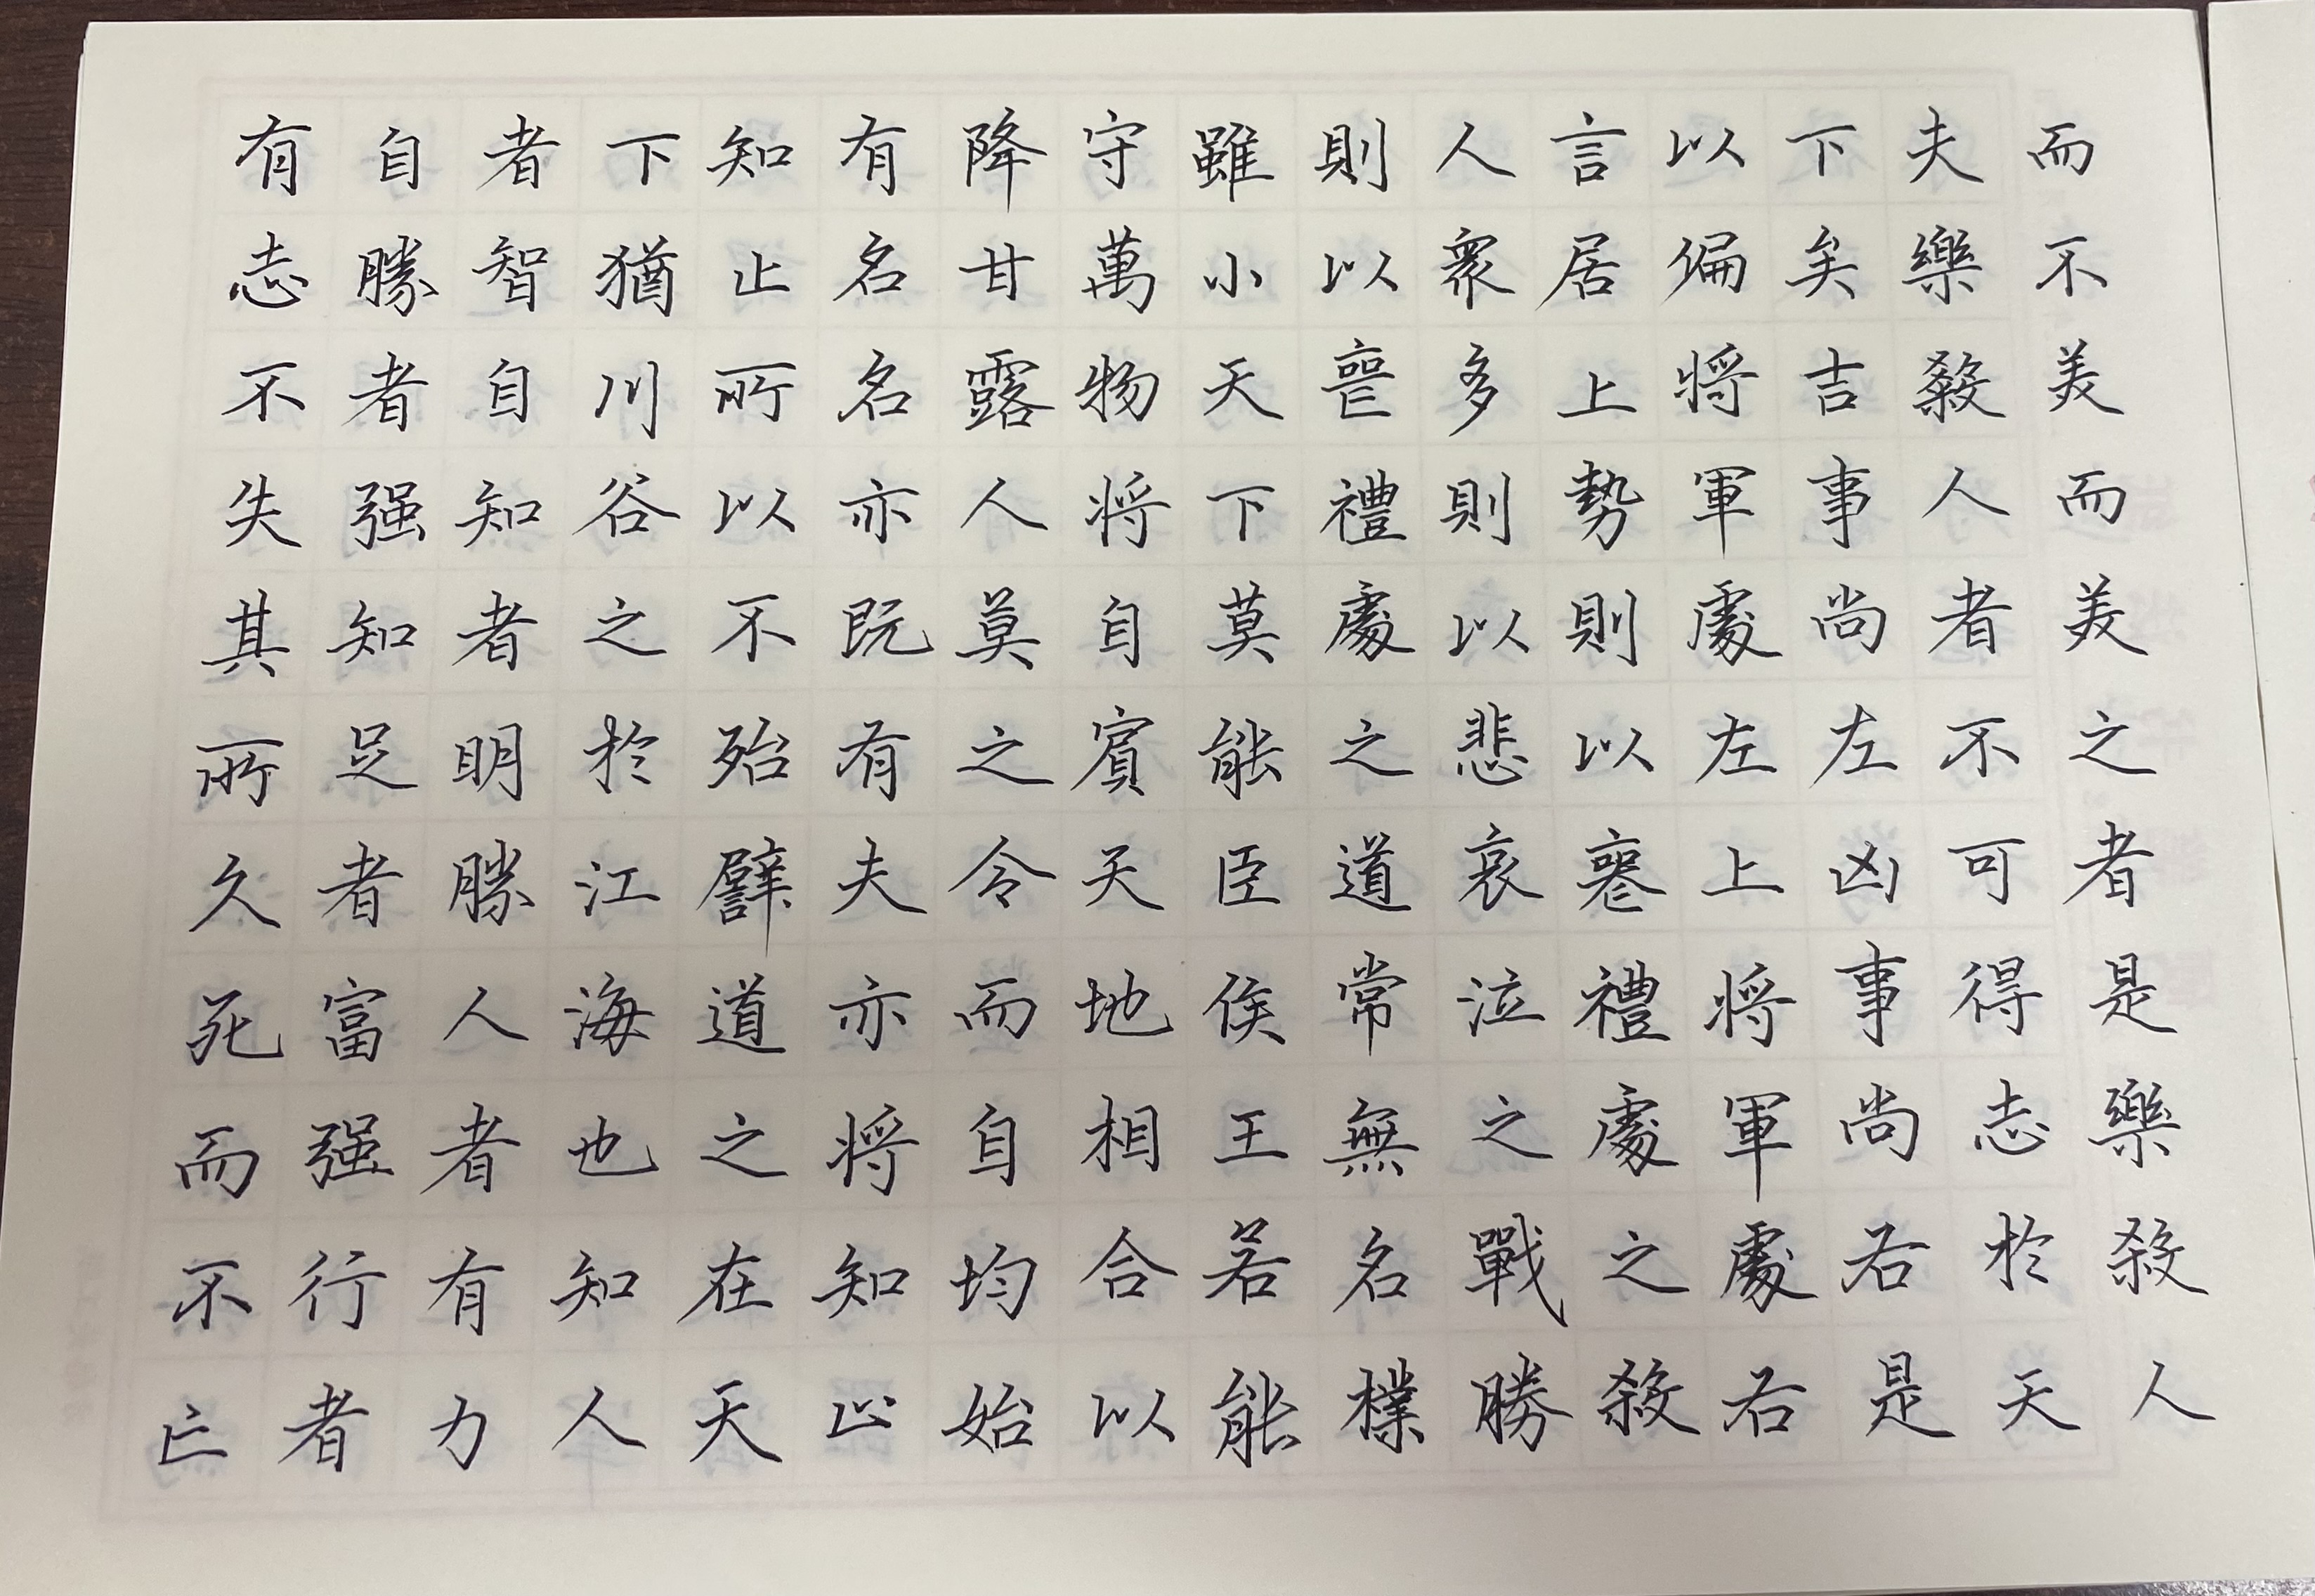 而不美而美之者是樂殺人
夫樂殺人者不可得志於天
下矣吉事尚左凶事尚右是
以偏将軍處左上将軍處右
言居上勢則以喪禮處之殺
人衆多則以悲哀泣之戰勝
則以喪禮處之道常無名樸
雖小天下莫能臣侯王若能
守萬物将自賓天地相合以
降甘露人莫之令而自均始
有名名亦既有夫亦将知止
知止所以不殆譬道之在天
下猶川谷之於江海也知人
者智自知者明勝人者有力
自勝者强知足者富强行者
有志不失其所久死而不亡